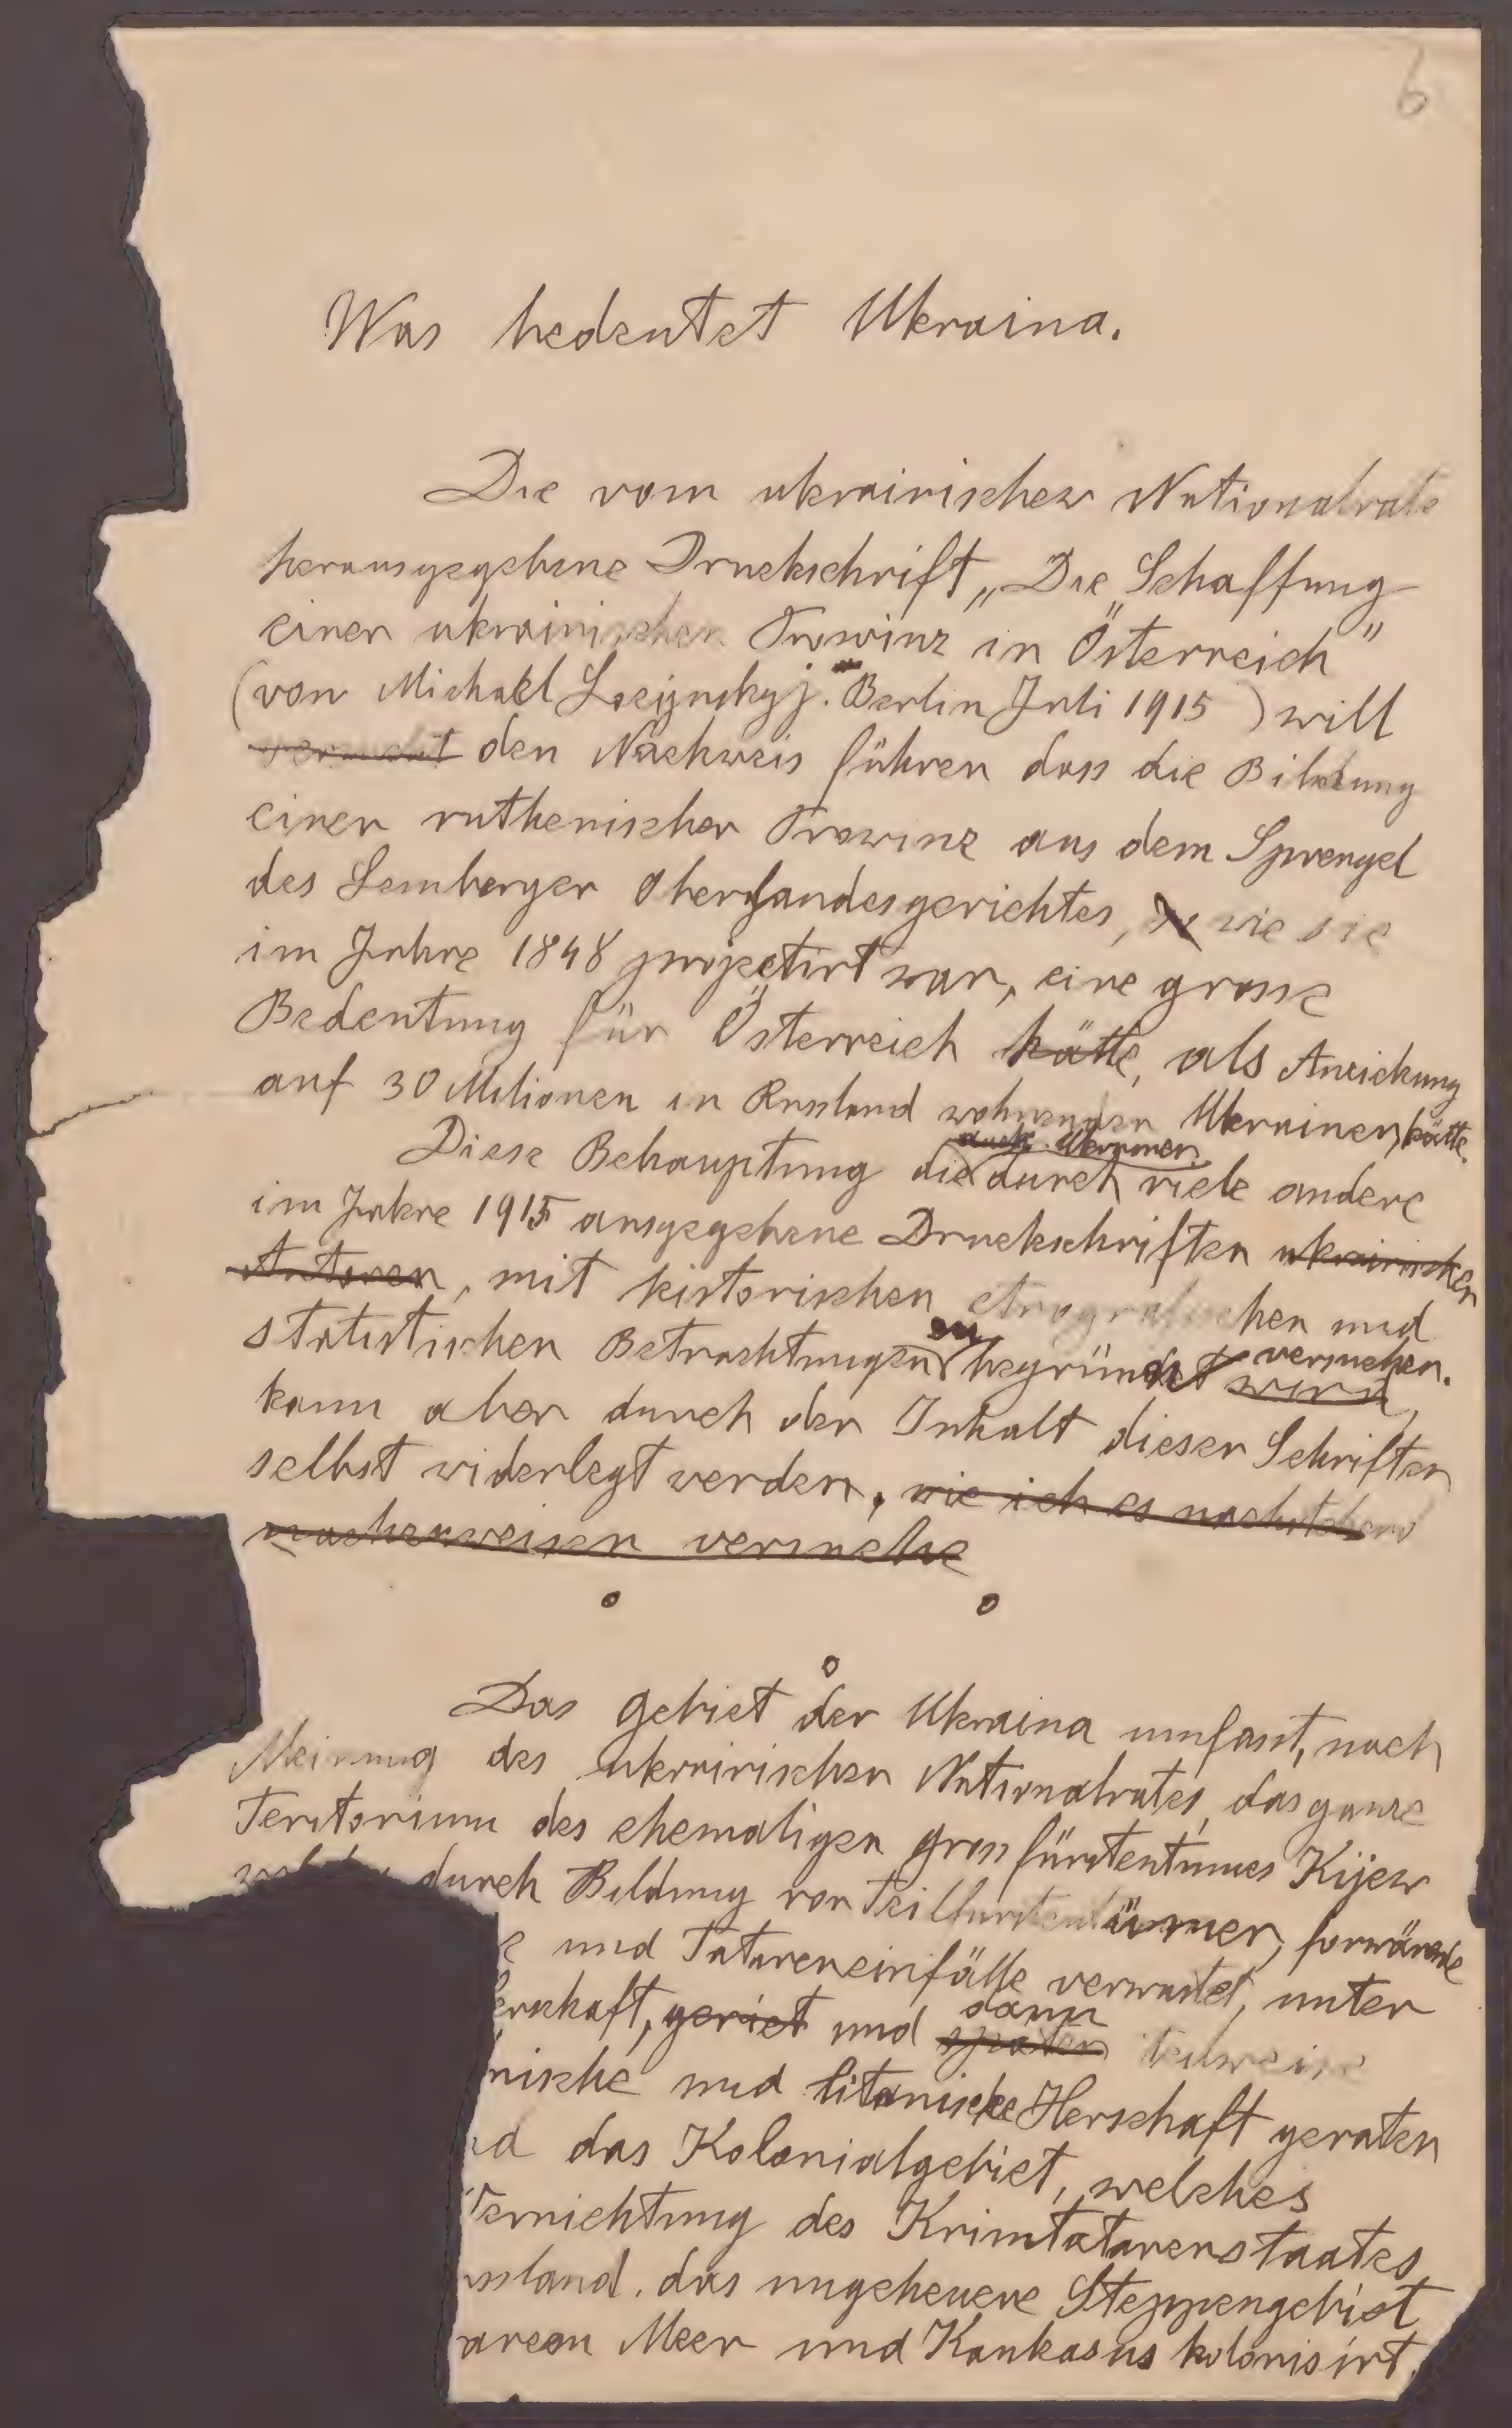 6
Was bedeutet Ukraina.
Die vom ukrainischen Nationalrate
herausgegebene Druckschrift „Die Schaffung
einer ukrainischen Prowinz in Österreich"
(von Michael Lozijnskyj. Berlin Juli 1915) will
versucht den Nachweis führen dass die Bildung
einer ruthenischen Prowinz aus dem Sprengel
des Lemberger Oberlandesgerichtes, wie sie
im Jahre 1848 projectirt war, eine grosse
Bedeutung für Österreich hätte, als Anziehung
auf 30 Milionen in Russland wohnenden Ukrainer, hätte.
auch Ukrainer
Diese Behauptung die durch viele andere
im Jahre 1915 ausgegebene Druckschriften ukrainischer
Autoren, mit historischen etnografischen und
zu versuchen.
statistischen Betrachtungen begründet wird,
kann aber durch den Inhalt dieser Schriften
selbst widerlegt werden, wie ich es nachstehend
nachzuweisen versuche
Das Gebiet der Ukraina umfasst, nach
Meinung des ukrainischen Nationalrates, das ganze
Teritorium des ehemaligen Grossfürstentumes Kijew
durch Bildung von Teilfürstentümer, forwärende
e und Tatareneinfälle verwüstet, unter
errschaft, geriet und dann
später teilweise
nische und litanische Herschaft geraten
nd das Kolonialgebiet, welches
Vernichtung des Krimtatarenstaates
ssland, das ungeheuere Steppengebiet
arzen Meer und Kaukasus kolonisirt.